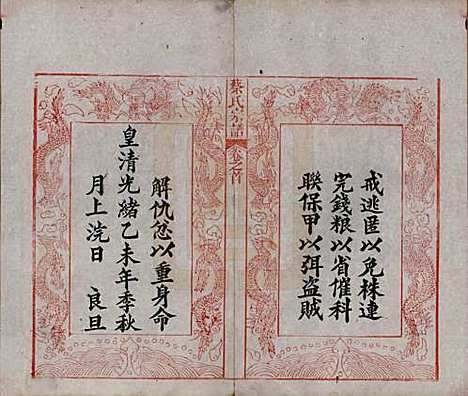 戒逃匿以免株連
完錢粮以省催科
聯保甲以弭盜賊
蔡氏宗譜
卷之首
解仇忿以重身命
皇清光緒乙未年季秋
月上浣日 良旦